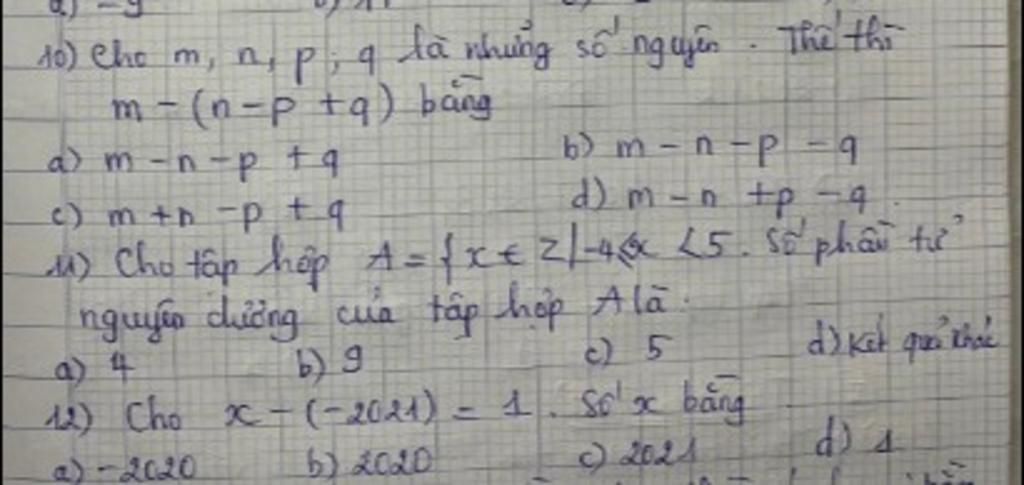 a) -9
10) Cho m, n, p; q là những số nguyên. Thế thì
m - (n - p + q) bằng
a) m - n - p + q b) m - n - p - q
c) m + n - p + q d) m - n + p - q.
11) Cho tập hợp A = {x ∈ Z / -4 ≤ x < 5. Số phần tử
nguyên dương của tập hợp A là.
a) 4 b) 9 c) 5 d) Kết quả khác
12) Cho x - (-2021) = 1. Số x bằng
a) -2020 b) 2020 c) 2021 d) 1